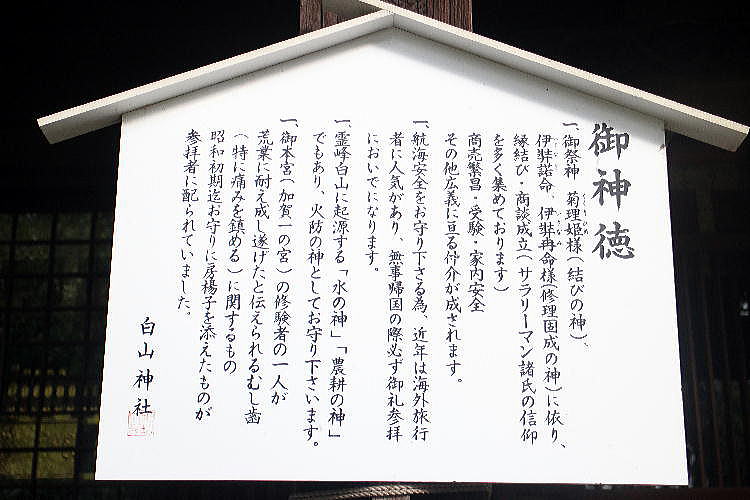 御神徳
一、御祭神　菊理姫様(結びの神)、
伊弉諾命、伊弉冉命様(修理固成の神)に依り、
縁結び・商談成立(サラリーマン諸氏の信仰
を多く集めております)
商売繁昌・受験・家内安全
その他広義に亘る仲介が成されます。
一、航海安全をお守り下さる為、近年は海外旅行
者に人気があり、無事帰国の際必ず御礼参拝
においでになります。
一、霊峰白山に起源する「水の神」「農耕の神」
でもあり、火防の神としてお守り下さいます。
一、御本宮(加賀一の宮)の修験者の一人が
荒業に耐え成し遂げたと伝えられるむし歯
(特に痛みを鎮める)に関するもの
昭和初期迄お守りに房楊子を添えたものが
参拝者に配られていました。
白山神社